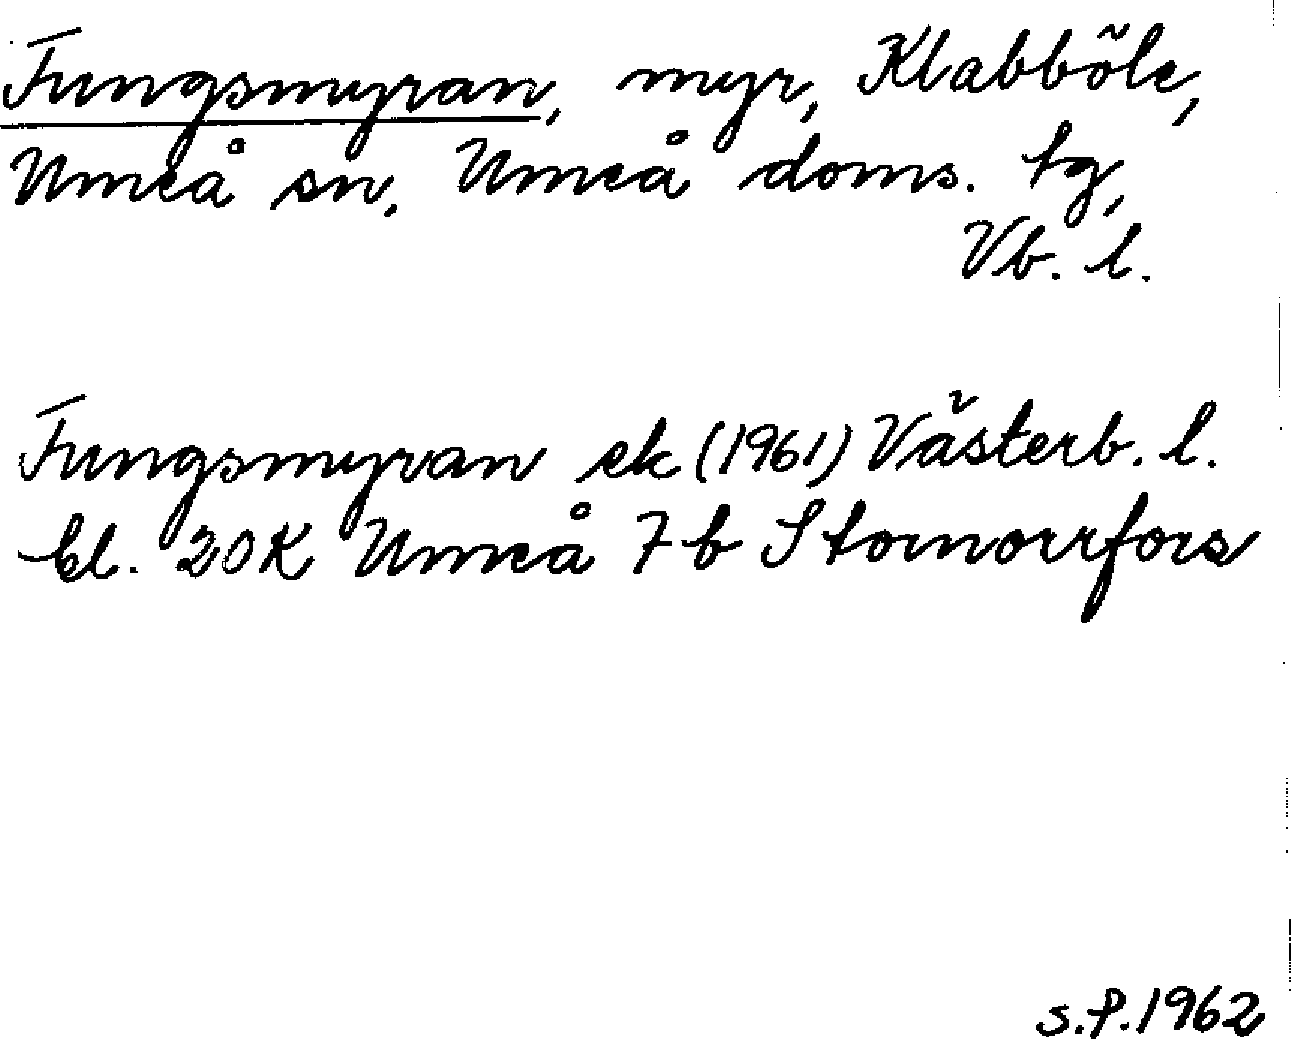 Tungsmyran, myr, Klabböle,
Umeå sn, Umeå doms. tg,
Vb. l.
Tungsmyran ek (1961) Västerb. l.
bl. 20K Umeå 7b Stornorrfors
s.f. 1962